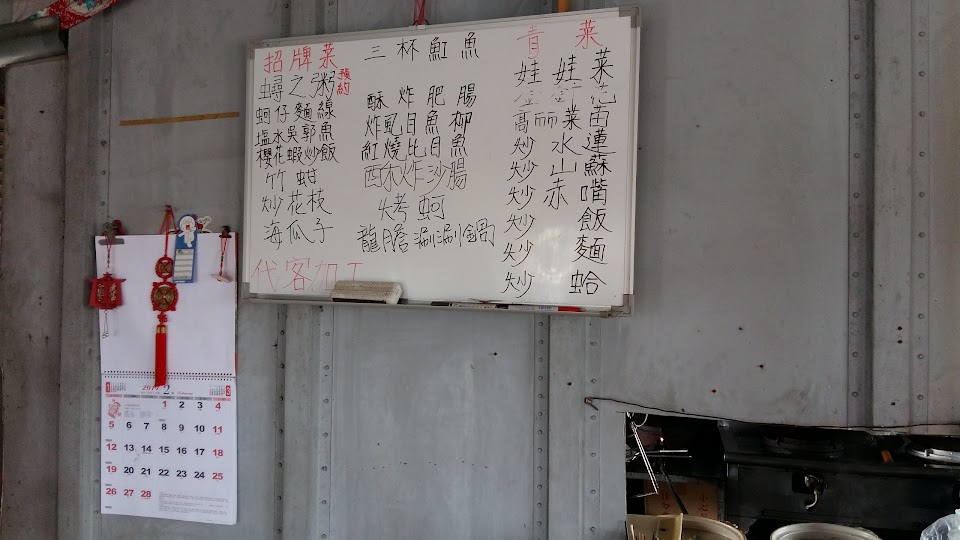 招牌菜
蟳之粥 預約
蚵仔麵線
塩水吳郭魚
櫻花蝦炒飯
竹蚶
炒花枝
海瓜子
代客加工
三杯魟魚
酥炸肥腸
炸虱目魚柳
紅燒比目魚
酥炸沙腸
烤蚵
龍膽涮涮鍋
青菜
娃娃菜
高麗菜苗
炒水蓮
炒山蘇
炒赤嘴
炒飯
炒麵
炒蛤
1
2017 2
3
1 2 3 4
5 6 7 8 9 10 11
12 13 14 15 16 17 18
19 20 21 22 23 24 25
26 27 28